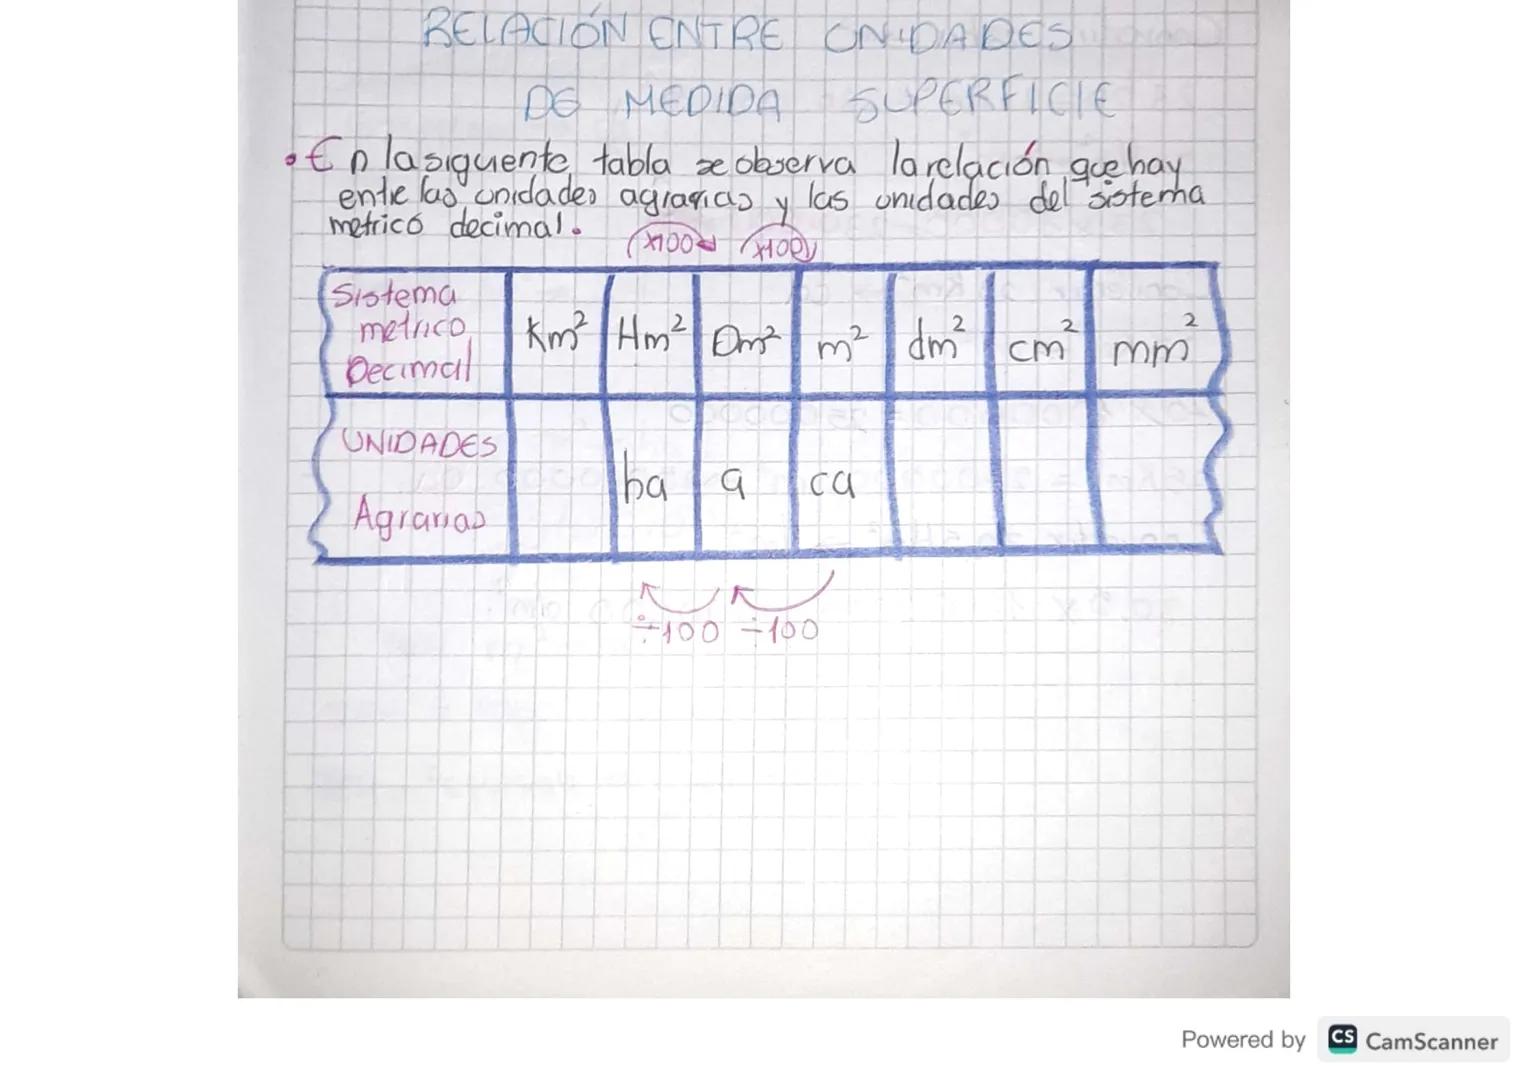 RELACIÓN ENTRE UNIDADES
DE MEDIDA SUPERFICIE
• En la siguente tabla se observa la relación que hay
entre las unidades agrarias y las unidades del sistema
metrico decimal.
x100 x100
Sistema metrico Decimal Km² Hm² Dm² m² dm² cm² mm²
UNIDADES Agrarias ha a ca
÷100 ÷100
Powered by CS CamScanner